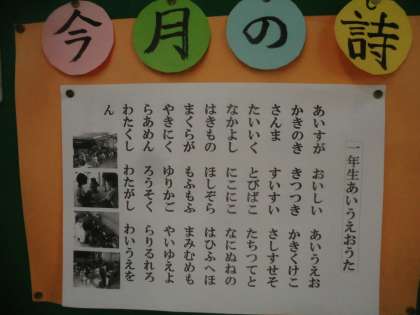 今月の詩
一年生あいうえおうた
あいすが おいしい あいうえお
かきのき きつつき かきくけこ
さんま すいすい さしすせそ
たいいく とびばこ たちつてと
なかよし にこにこ なにぬねの
はきもの ほしぞら はひふへほ
まくらが もふもふ まみむめも
やきにく ゆりかご やいゆえよ
らあめん ろうそく らりるれろ
わたくし わたがし わいうえを
ん